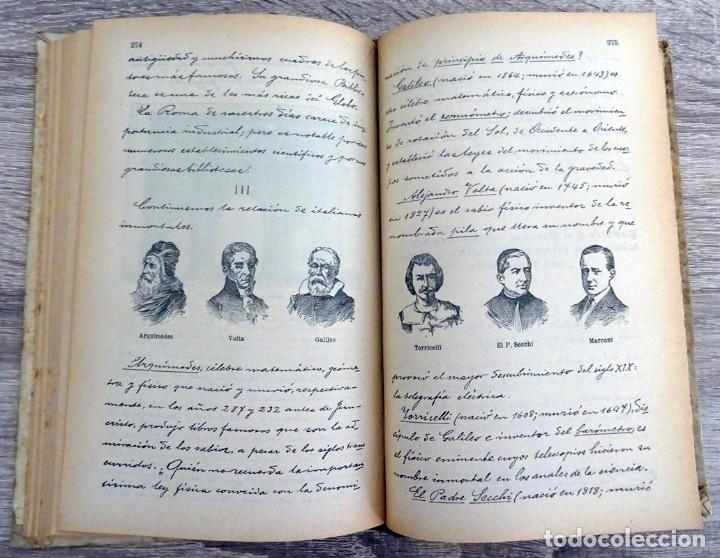 274
antigüedad y muchísimos cuadros de los pin-
tores más famosos. Su grandiosa Biblio-
teca es una de las más ricas del Globo.
La Roma de nuestros días carece de im-
potancia industrial; pero es notable por sus
numerosos establecimientos científicos y por sus
grandiosas bibliotecas.
III
Continuemos la relación de italianos
inmortales.
Arquímedes
Volta
Galileo
Arquímedes, célebre matemático, geóme-
tra y físico que nació y murió, respectiva-
mente, en los años 287 y 232 antes de Jesu-
cristo, produjo libros famosos que son la ad-
miración de los sabios, a pesar de los siglos trans-
curridos. ¿Quién no recuerda la importan-
tísima ley física conocida con la denomi-
275
nación de principio de Arquímedes?
Galileo (nació en 1564; murió en 1643) es
otro célebre matemático, físico y astrónomo.
Inventó el termómetro; descubrió el movimien-
to de rotación del Sol, de Occidente a Oriente,
y estableció las leyes del movimiento de los cuer-
pos sometidos a la acción de la gravedad.
Alejandro Volta (nació en 1745; murió
en 1827) es el sabio físico inventor de la re-
nombrada pila que lleva su nombre y que
Torricelli
El P. Secchi
Marconi
provocó el mayor descubrimiento del siglo XIX:
la telegrafía eléctrica.
Torricelli (nació en 1608; murió en 1647), dis-
cípulo de Galileo e inventor del barómetro, es
el físico eminente cuyos telescopios hicieron su
nombre inmortal en los anales de la ciencia.
El Padre Secchi (nació en 1818; murió
todocoleccion